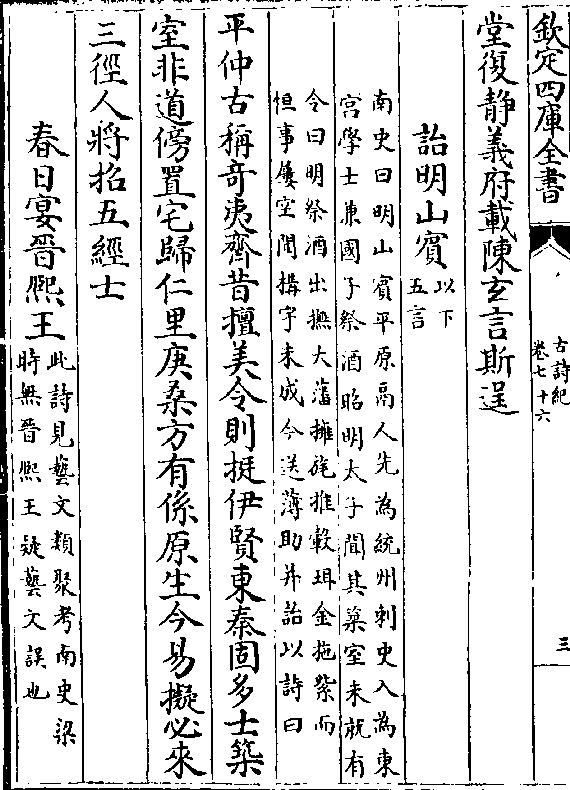 欽定四庫全書
古詩紀
卷七十六
三
堂復静義府載陳玄言斯逞
詒明山賓
以下
五言
南史曰明山賓平原鬲人先為統州刺史入為東
宫學士兼國子祭酒昭明太子聞其築室未就有
令曰明祭酒出撫大藩擁旄推轂珥金拖紫而
恒事屢空聞搆宇未成今送薄助并詒以詩曰
平仲古稱奇夷齊昔擅美令則挺伊賢東秦固多士築
室非道傍置宅歸仁里庚桑方有係原生今易擬必來
三徑人將招五經士
春日宴晉熙王
此詩見藝文類聚考南史梁
時無晉熙王疑藝文誤也